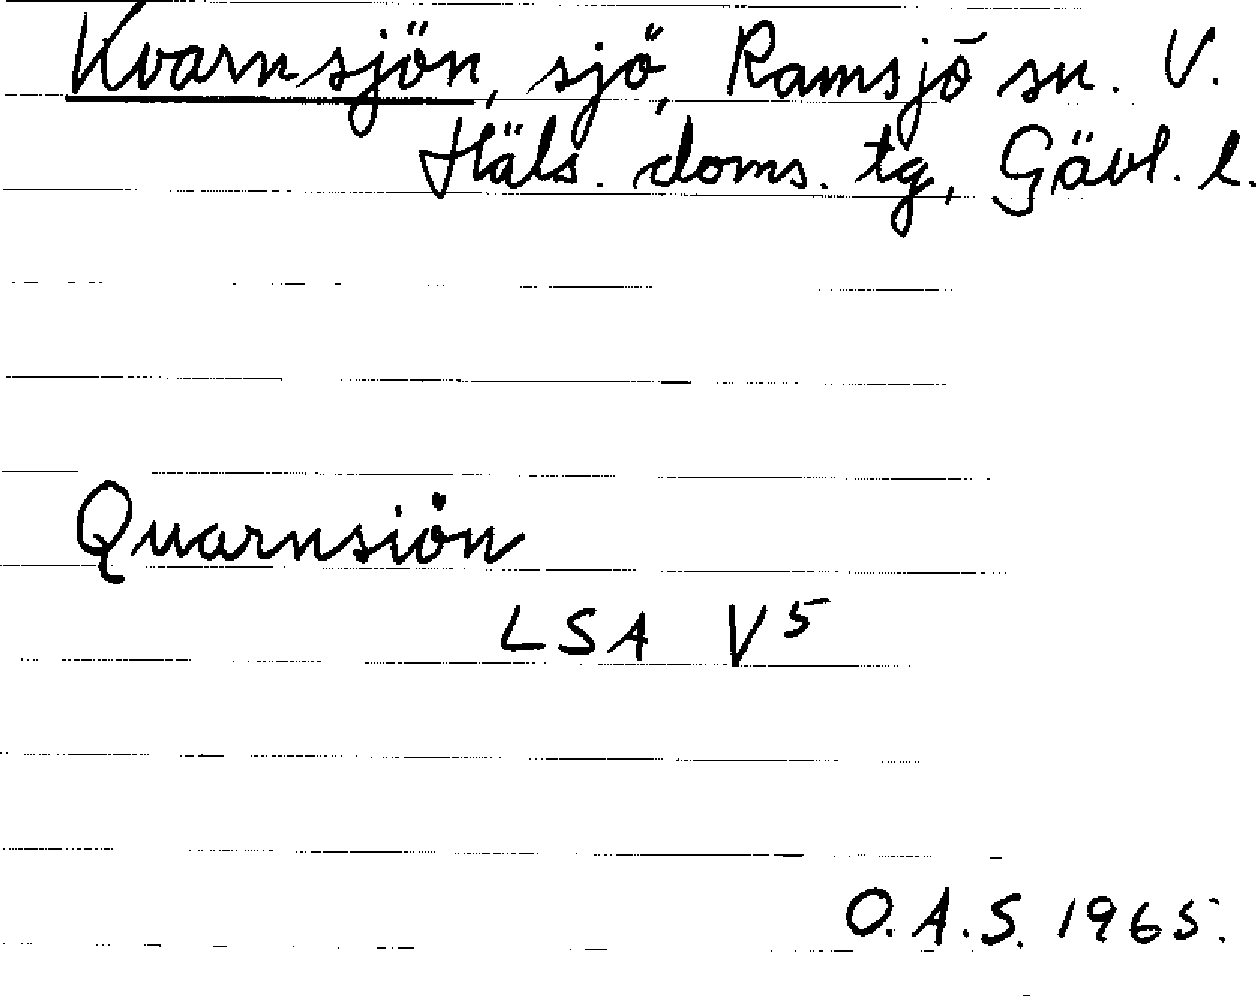 Kvarnsjön, sjö, Ramsjö sn. V.
Häls. doms. tg, Gävl. l.
Quarnsiön
LSA V5
O.A.S. 1965.